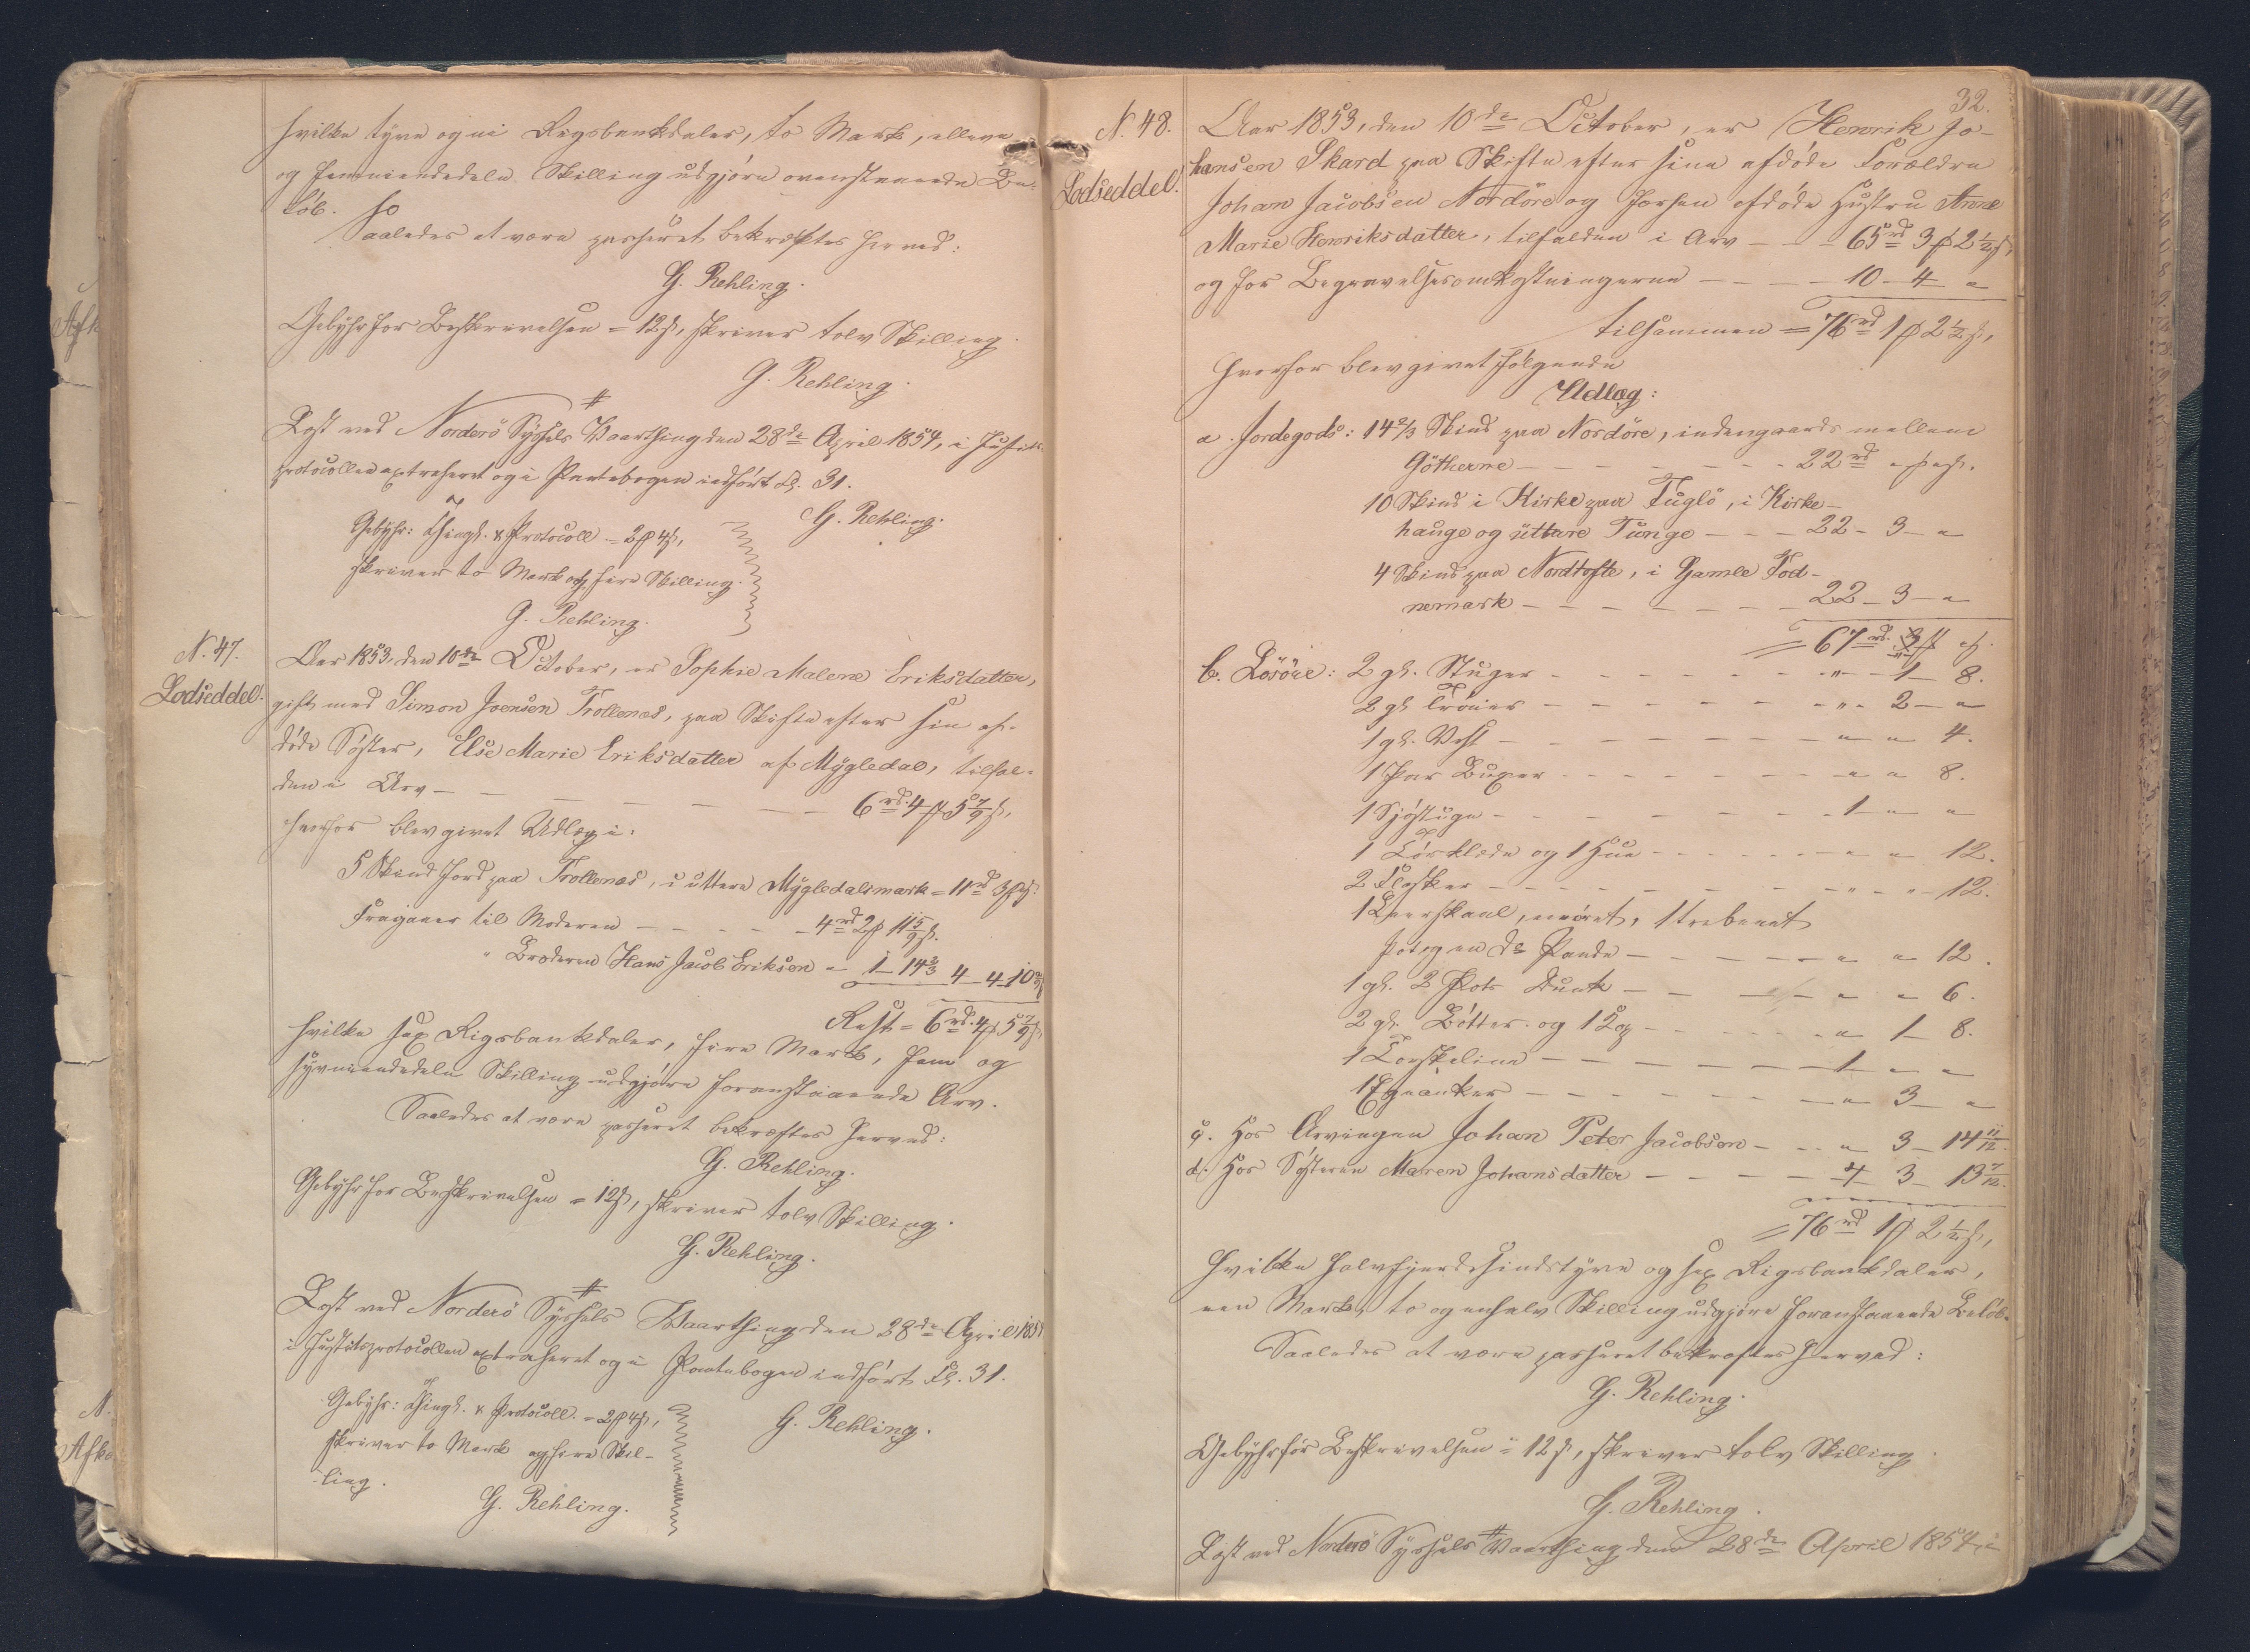 hvilke tyve og ni Rigsbankdaler, to Mark, elleve
og fem niendedele Skilling udgjøre ovenstaaende Be-
løb.
Saaledes at være passeret bekræftes herved:
G. Rehling.
Gebyhr for Beskrivelsen = 12 ß, skriver tolv Skilling.
G. Rehling.
Læst ved Norderö Syssels Vaarthing den 28de April 1854, i Justits-
protocollen extraheret og i Pantebogen indført Fol. 31.
G. Rehling.
Gebyhr: Thingl. & Protocoll. = 2 ꟙ 4 ß,
skriver to Mark og fire Skilling.
G. Rehling.
N. 47.
Lodseddel.
Aar 1853, den 10de October, er Sophie Malene Eriksdatter,
gift med Simon Joensen Trollenæs, paa Skifte efter sin af-
døde Søster, Else Marie Eriksdatter af Mygledal, tilfal-
den i Arv — — — — — 6 rd. 4 ꟙ 5 7/9 ß,
hvorfor blev givet Udlæg i:
5 Skind Jord paa Trollenæs, i uttere Mygledalsmark = 11 rd 3 ꟙ " ß.
Fragaaer til Moderen — — — 4 rd 2 ꟙ 11 5/9 ß.
" Broderen Hans Jacob Eriksen — " 1 — 14 2/3 4 — 4 — 10 2/9
Rest = 6 rd. 4 ꟙ 5 7/9 ß
hvilke sex Rigsbankdaler, fire Mark, fem og
syvniendedele Skilling udgjøre foranstaaende Arv.
Saaledes at være passeret bekræftes herved:
G. Rehling.
Gebyhr for Beskrivelsen = 12 ß, skriver tolv Skilling.
G. Rehling.
Læst ved Norderö Syssels Vaarthing den 28de April 1854
i Justitsprotocollen extraheret og i Pantebogen indført Fol. 31.
G. Rehling.
Gebyhr: Thingl. & Protocoll. = 2 ꟙ 4 ß,
skriver to Mark og fire Skil-
ling.
G. Rehling.
32.
N. 48.
Lodseddel.
Aar 1853, den 10de October, er Henrik Jo-
hansen Skard paa Skifte efter sine afdøde Forældre
Johan Jacobsen Nordöre og Hansen afdøde Hustru Anne
Marie Henriksdatter, tilfalden i Arv — — 65 rd 3 ꟙ 2 1/2 ß,
og for Begravelsesomkostningerne — — — — 10 — 4 — "
tilsammen = 76 rd 1 ꟙ 2 1/2 ß,
hvorfor blev givet følgende
Udlæg:
a. Jordegods: 14 2/3 Skind paa Nordöre, indengaards mellem
Götherne — — — — — 22 rd " ꟙ " ß.
10 Skind i Kirke paa Fuglö, i Kirke-
hauge og üttare Tunge — — — 22 — 3 — "
4 Skind paa Nordtofte, i Gamle Fod-
nemark — — — — — 22 — 3 — "
= 67 rd. " ꟙ " ß.
b. Lösöre: 2 gl. Stuger — — — — — " — 1 — 8.
2 gl. Trøier — — — — — " — 2 — "
1 gl. Vest — — — — — " — " — 4.
1 Par Buxer — — — — — " — " — 8.
1 Sjøstuge — — — — — 1 — " — "
1 Tørklæde og 1 Hue — — — — " — " — 12.
2 Flasker — — — — — " — " — 12.
1 Leerskaal, 1 trebenet
Pot og en do Pande — — — — " — " — 12.
1 gl. 2 Pots Dunk — — — " — " — 6.
2 gl. Bötter og 1 Løg — — — " — 1 — 8.
1 Torskeline — — — — — 1 — " — "
1 — — — — — " — 3 — "
c. Hos Arvingen Johan Peter Jacobsen — — " — 3 — 14 11/12
d. Hos Søsteren Maren Johansdatter — — — — 4 — 3 — 13 7/12.
= 76 rd 1 ꟙ 2 1/2 ß,
hvilke halvfjerdsindstyve og sex Rigsbankdaler,
een Mark, to og enhalv Skilling udgjøre foranstaaende Beløb.
Saaledes at være passeret bekræftes herved:
G. Rehling.
Gebyhr for Beskrivelsen = 12 ß, skriver tolv Skilling.
G. Rehling.
Læst ved Norderö Syssels Vaarthing den 28de April 1854, i